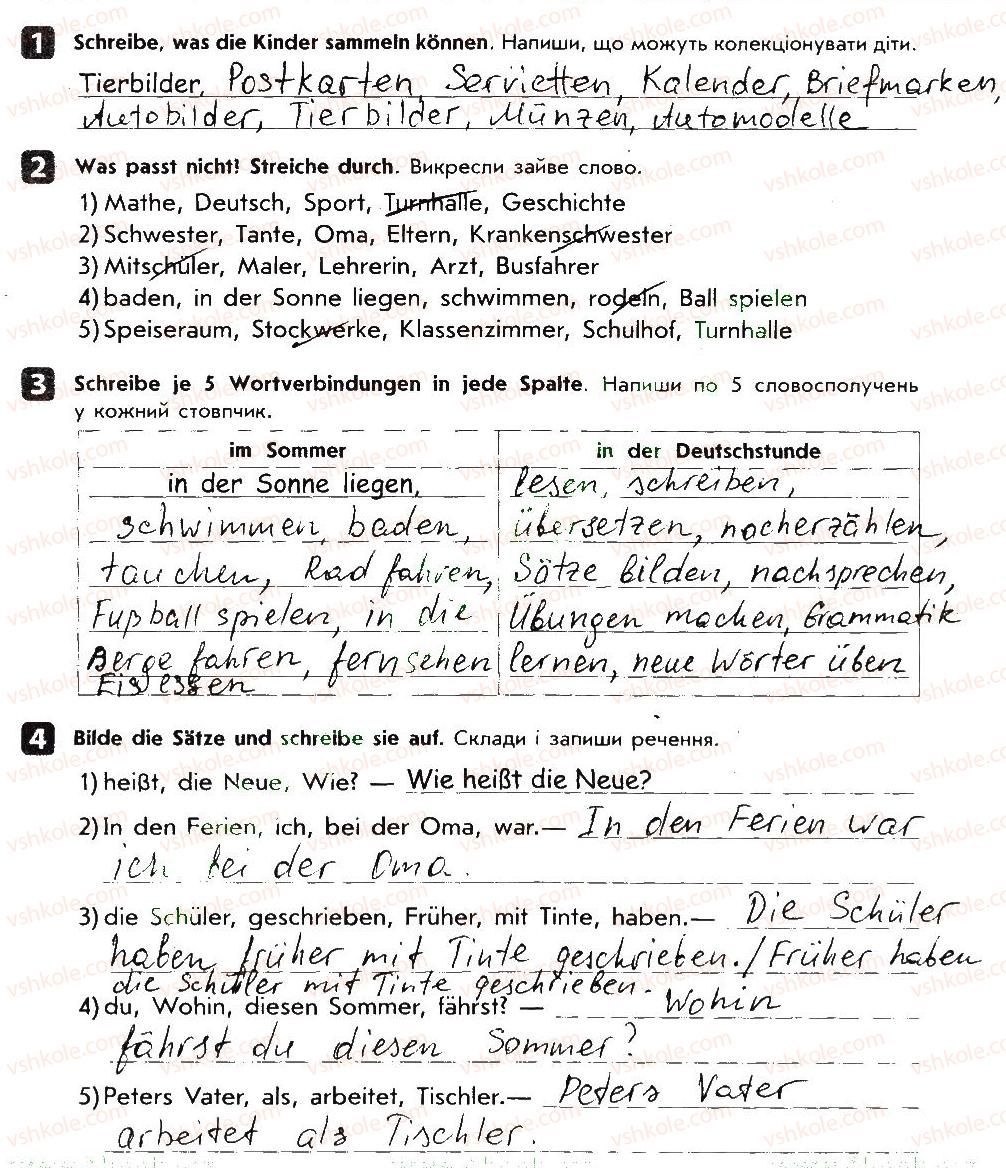 1 Schreibe, was die Kinder sammeln können. Напиши, що можуть колекціонувати діти.
Tierbilder, Postkarten, Servietten, Kalender, Briefmarken,
Autobilder, Tierbilder, Münzen, Automodelle
2 Was passt nicht? Streiche durch. Викресли зайве слово.
1) Mathe, Deutsch, Sport, Turnhalle, Geschichte
2) Schwester, Tante, Oma, Eltern, Krankenschwester
3) Mitschüler, Maler, Lehrerin, Arzt, Busfahrer
4) baden, in der Sonne liegen, schwimmen, rodeln, Ball spielen
5) Speiseraum, Stockwerke, Klassenzimmer, Schulhof, Turnhalle
3 Schreibe je 5 Wortverbindungen in jede Spalte. Напиши по 5 словосполучень
у кожний стовпчик.
im Sommer
in der Sonne liegen,
schwimmen, baden,
tauchen, Rad fahren,
Fußball spielen, in die
Berge fahren, fernsehen
Eis essen
in der Deutschstunde
lesen, schreiben,
übersetzen, nacherzählen,
Sätze bilden, nachsprechen,
Übungen machen, Grammatik
lernen, neue Wörter üben
4 Bilde die Sätze und schreibe sie auf. Склади і запиши речення.
1) heißt, die Neue, Wie? — Wie heißt die Neue?
2) In den Ferien, ich, bei der Oma, war. — In den Ferien war
ich bei der Oma.
3) die Schüler, geschrieben, Früher, mit Tinte, haben. — Die Schüler
haben früher mit Tinte geschrieben. / Früher haben
die Schüler mit Tinte geschrieben.
4) du, Wohin, diesen Sommer, fährst? — Wohin
fährst du diesen Sommer?
5) Peters Vater, als, arbeitet, Tischler. — Peters Vater
arbeitet als Tischler.
vshkole.com